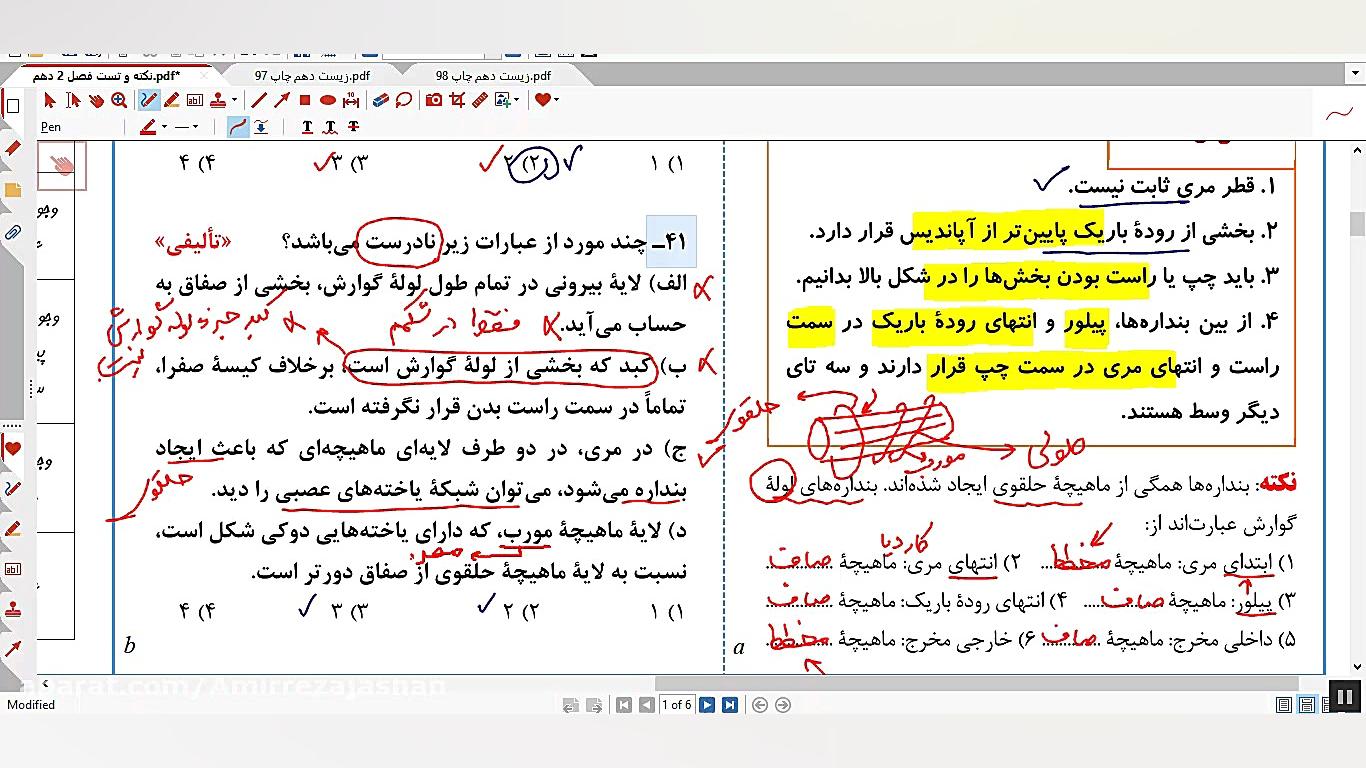 زیست دهم چاپ 98.pdf
زیست دهم چاپ 97.pdf
نکته و تست فصل 2 دهم.pdf*
Pen
۱. قطر مری ثابت نیست.
۲. بخشی از رودهٔ باریک پایین‌تر از آپاندیس قرار دارد.
۳. باید چپ یا راست بودن بخش‌ها را در شکل بالا بدانیم.
۴. از بین بنداره‌ها، پیلور و انتهای رودهٔ باریک در سمت
راست و انتهای مری در سمت چپ قرار دارند و سه تای
دیگر وسط هستند.
حلقوی
مورب
طولی
نکته: بنداره‌ها همگی از ماهیچهٔ حلقوی ایجاد شده‌اند. بنداره‌های لولهٔ
گوارش عبارت‌اند از:
کاردیا
۱) ابتدای مری: ماهیچهٔ مخطط ۲) انتهای مری: ماهیچهٔ صاف
۳) پیلور: ماهیچهٔ صاف ۴) انتهای رودهٔ باریک: ماهیچهٔ صاف
۵) داخلی مخرج: ماهیچهٔ صاف ۶) خارجی مخرج: ماهیچهٔ مخطط
a
۱) ۱ ۲) ۲ ۳) ۳ ۴) ۴
۴۱ـ چند مورد از عبارات زیر نادرست می‌باشد؟ «تألیفی»
الف) لایهٔ بیرونی در تمام طول لولهٔ گوارش، بخشی از صفاق به
حساب می‌آید. فقط در شکم
کبد جزء لوله گوارش نیست
ب) کبد که بخشی از لولهٔ گوارش است، برخلاف کیسهٔ صفرا،
تماماً در سمت راست بدن قرار نگرفته است.
ج) در مری، در دو طرف لایه‌ای ماهیچه‌ای که باعث ایجاد
بنداره می‌شود، می‌توان شبکهٔ یاخته‌های عصبی را دید.
حلقوی
د) لایهٔ ماهیچهٔ مورب، که دارای یاخته‌هایی دوکی شکل است،
نسبت به لایهٔ ماهیچهٔ حلقوی از صفاق دورتر است.
۱) ۱ ۲) ۲ ۳) ۳ ۴) ۴
b
aparat.com/Amirrezajashan
Modified
1 of 6